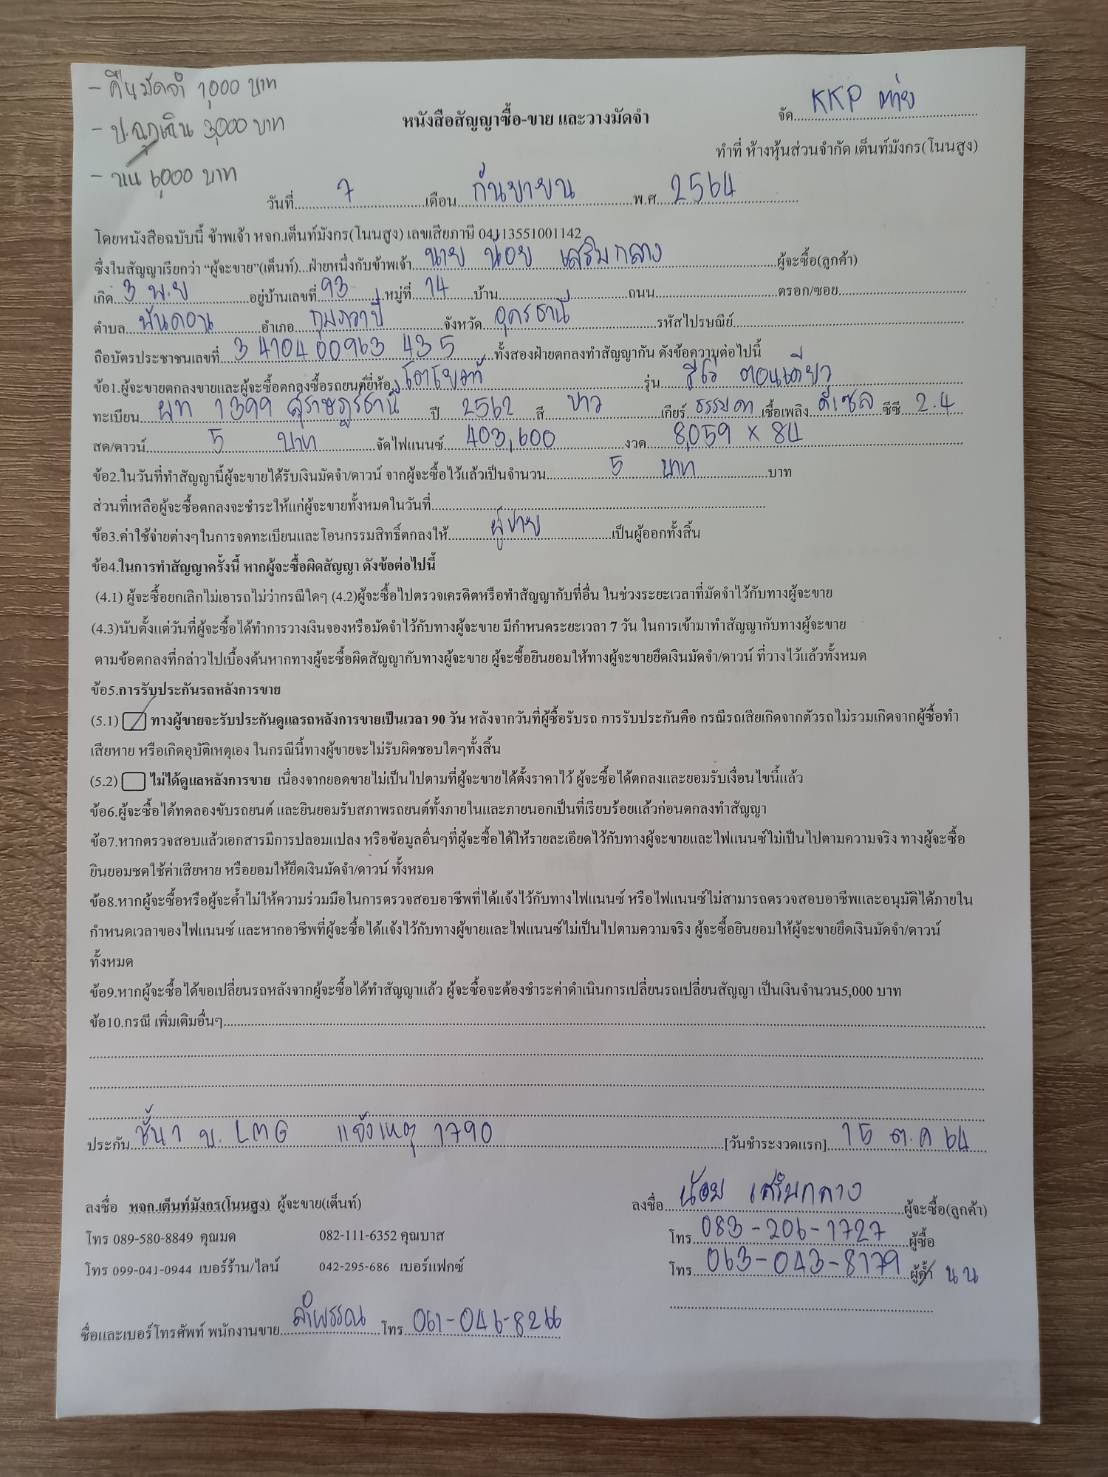 - คืนมัดจำ 1,000 บาท
- ป.ฉุกเฉิน 3,000 บาท
- 6,000 บาท
จัด KKP ท่าย
หนังสือสัญญาซื้อ-ขาย และวางมัดจำ
ทำที่ ห้างหุ้นส่วนจำกัด เต็นท์มังกร(โนนสูง)
วันที่ 7 เดือน กันยายน พ.ศ. 2564
โดยหนังสือฉบับนี้ ข้าพเจ้า หจก.เต็นท์มังกร(โนนสูง) เลขเสียภาษี 04113551001142
ซึ่งในสัญญาเรียกว่า "ผู้จะขาย"(เต็นท์)...ฝ่ายหนึ่งกับข้าพเจ้า นาย น้อย เสริมกลาง ผู้จะซื้อ(ลูกค้า)
เกิด 3 พ.ย อยู่บ้านเลขที่ 93 หมู่ที่ 14 บ้าน ถนน ตรอก/ซอย
ตำบล พันดอน อำเภอ กุมภวาปี จังหวัด อุดรธานี รหัสไปรษณีย์
ถือบัตรประชาชนเลขที่ 3 4104 00963 43 5 ทั้งสองฝ่ายตกลงทำสัญญากัน ดังข้อความต่อไปนี้
ข้อ1.ผู้จะขายตกลงขายและผู้จะซื้อตกลงซื้อรถยนต์ยี่ห้อ โตโยต้า รุ่น รีโว่ ตอนเดียว
ทะเบียน ผท 1399 สุราษฎร์ธานี ปี 2562 สี ขาว เกียร์ ธรรมดา เชื้อเพลิง ดีเซล ซีซี 2.4
สด/ดาวน์ 5 บาท จัดไฟแนนซ์ 403,600 งวด 8,059 x 84
ข้อ2.ในวันที่ทำสัญญานี้ผู้จะขายได้รับเงินมัดจำ/ดาวน์ จากผู้จะซื้อไว้แล้วเป็นจำนวน 5 บาท บาท
ส่วนที่เหลือผู้จะซื้อตกลงจะชำระให้แก่ผู้จะขายทั้งหมดในวันที่
ข้อ3.ค่าใช้จ่ายต่างๆในการจดทะเบียนและโอนกรรมสิทธิ์ตกลงให้ ผู้ขาย เป็นผู้ออกทั้งสิ้น
ข้อ4.ในการทำสัญญาครั้งนี้ หากผู้จะซื้อผิดสัญญา ดังข้อต่อไปนี้
(4.1) ผู้จะซื้อยกเลิกไม่เอารถไม่ว่ากรณีใดๆ (4.2)ผู้จะซื้อไปตรวจเครดิตหรือทำสัญญากับที่อื่น ในช่วงระยะเวลาที่มัดจำไว้กับทางผู้จะขาย
(4.3)นับตั้งแต่วันที่ผู้จะซื้อได้ทำการวางเงินจองหรือมัดจำไว้กับทางผู้จะขาย มีกำหนดระยะเวลา 7 วัน ในการเข้ามาทำสัญญากับทางผู้จะขาย
ตามข้อตกลงที่กล่าวไปเบื้องต้นหากทางผู้จะซื้อผิดสัญญากับทางผู้จะขาย ผู้จะซื้อยินยอมให้ทางผู้จะขายยึดเงินมัดจำ/ดาวน์ ที่วางไว้แล้วทั้งหมด
ข้อ5.การรับประกันรถหลังการขาย
(5.1) ทางผู้ขายจะรับประกันดูแลรถหลังการขายเป็นเวลา 90 วัน หลังจากวันที่ผู้ซื้อรับรถ การรับประกันคือ กรณีรถเสียเกิดจากตัวรถไม่รวมเกิดจากผู้ซื้อทำ
เสียหาย หรือเกิดอุบัติเหตุเอง ในกรณีนี้ทางผู้ขายจะไม่รับผิดชอบใดๆทั้งสิ้น
(5.2) ไม่ได้ดูแลหลังการขาย เนื่องจากยอดขายไม่เป็นไปตามที่ผู้จะขายได้ตั้งราคาไว้ ผู้จะซื้อได้ตกลงและยอมรับเงื่อนไขนี้แล้ว
ข้อ6.ผู้จะซื้อได้ทดลองขับรถยนต์ และยินยอมรับสภาพรถยนต์ทั้งภายในและภายนอกเป็นที่เรียบร้อยแล้วก่อนตกลงทำสัญญา
ข้อ7.หากตรวจสอบแล้วเอกสารมีการปลอมแปลง หรือข้อมูลอื่นๆที่ผู้จะซื้อได้ให้รายละเอียดไว้กับทางผู้จะขายและไฟแนนซ์ไม่เป็นไปตามความจริง ทางผู้จะซื้อ
ยินยอมชดใช้ค่าเสียหาย หรือยอมให้ยึดเงินมัดจำ/ดาวน์ ทั้งหมด
ข้อ8.หากผู้จะซื้อหรือผู้จะค้ำไม่ให้ความร่วมมือในการตรวจสอบอาชีพที่ได้แจ้งไว้กับทางไฟแนนซ์ หรือไฟแนนซ์ไม่สามารถตรวจสอบอาชีพและอนุมัติได้ภายใน
กำหนดเวลาของไฟแนนซ์ และหากอาชีพที่ผู้จะซื้อได้แจ้งไว้กับทางผู้ขายและไฟแนนซ์ไม่เป็นไปตามความจริง ผู้จะซื้อยินยอมให้ผู้จะขายยึดเงินมัดจำ/ดาวน์
ทั้งหมด
ข้อ9.หากผู้จะซื้อได้ขอเปลี่ยนรถหลังจากผู้จะซื้อได้ทำสัญญาแล้ว ผู้จะซื้อจะต้องชำระค่าดำเนินการเปลี่ยนรถเปลี่ยนสัญญา เป็นเงินจำนวน5,000 บาท
ข้อ10.กรณี เพิ่มเติมอื่นๆ
ประกัน ชั้น 1 บ. LMG แจ้งเหตุ 1790 [วันชำระงวดแรก] 15 ต.ค 64
ลงชื่อ หจก.เต็นท์มังกร(โนนสูง) ผู้จะขาย(เต็นท์) ลงชื่อ น้อย เสริมกลาง ผู้จะซื้อ(ลูกค้า)
โทร 089-580-8849 คุณมด 082-111-6352 คุณบาส โทร 083-206-1727 ผู้ซื้อ
โทร 099-041-0944 เบอร์ร้าน/ไลน์ 042-295-686 เบอร์แฟกซ์ โทร 063-043-8179 ผู้ค้ำ นน
ชื่อและเบอร์โทรศัพท์ พนักงานขาย ลำพรรณ โทร 061-046-8266